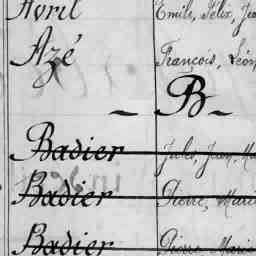 Avril Emile, Félix, Je
Azé François, Léon
— B —
Badier Jules, Jean, Ma
Badier Pierre, Marie
Badier Pierre Marie